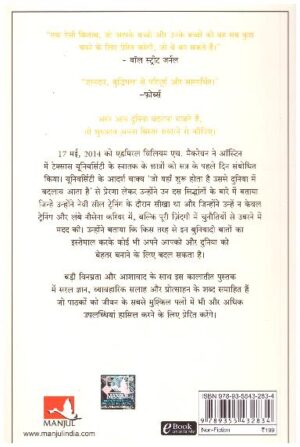 "एक ऐसी किताब, जो आपके बच्चों और उनके बच्चों को वह सब कुछ
करने के लिए प्रेरित करेगी, जो वे कर सकते हैं।"
- वॉल स्ट्रीट जर्नल
बुद्धिमत्ता से परिपूर्ण और
-फ़ोर्ब्स
अगर आप दुनिया बदलना चाहते हैं,
तो शुरुआत अपना बिस्तर से कीजिए।
17 मई, 2014 को एडमिरल विलियम एच. मैकरेवन ने ऑस्टिन
में टेक्सास यूनिवर्सिटी के स्नातक के छात्रों को सत्र के पहले दिन संबोधित
किया। यूनिवर्सिटी के आदर्श वाक्य "जो यहाँ शुरू होता है उससे दुनिया में
बदलाव आता है" से प्रेरणा लेकर उन्होंने उन दस सिद्धांतों के बारे में बताया
जिन्हें उन्होंने नेवी सील ट्रेनिंग के दौरान सीखा था और जिन्होंने उन्हें न केवल
ट्रेनिंग और लंबे नौसेना करियर में, बल्कि पूरी ज़िंदगी में चुनौतियों से उबारने में
मदद की। उन्होंने बताया कि किस तरह से इन बुनियादी बातों का
इस्तेमाल करके कोई भी अपने आपको और दुनिया को
बेहतर बनाने के लिए बदल सकता है।
बड़ी विनम्रता और आशावाद के साथ इस कालातीत पुस्तक
में सरल ज्ञान, व्यावहारिक सलाह और प्रोत्साहन के शब्द समाहित हैं
जो पाठकों को जीवन के सबसे मुश्किल पलों में भी और अधिक
उपलब्धियां हासिल करने के लिए प्रेरित करेंगे।
MANJUL
www.manjulindia.com
eBook
ISBN 978-93-5543-283-4
9 789355 432834
Non-Fiction
₹199